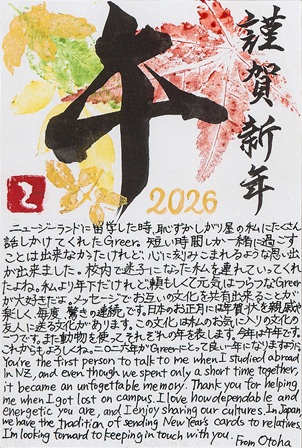 謹賀新年
午
2026
ニュージーランドに留学した時、恥ずかしがり屋の私にたくさん
話しかけてくれたGreer。短い時間しか一緒に過ごす
ことは出来なかったけれど、心に刻みこまれるような思い出
が出来ました。校内で迷子になった私を連れていってくれ
たよね。私より年下だけれど頼もしくて元気はつらつなGreer
が大好きだよ。メッセージでお互いの文化を共有出来ることが
楽しく、毎度驚きの連続です。日本のお正月には年賀状を親戚や
友人に送る文化があります。この文化は私のお気に入りの文化の
一つです。また動物を使ってそれぞれの年を表します。今年は午年です。
これからもよろしくね。二〇二六年がGreerにとって良い一年になりますように。
You're the first person to talk to me when I studied abroad
in NZ, and even though we spent only a short time together,
it became an unforgettable memory. Thank you for helping
me when I got lost on campus. I love how dependable and
energetic you are, and I enjoy sharing our cultures. In Japan,
we have the tradition of sending New Year's cards to relatives.
I'm looking forward to keeping in touch with you.
From Otoha.